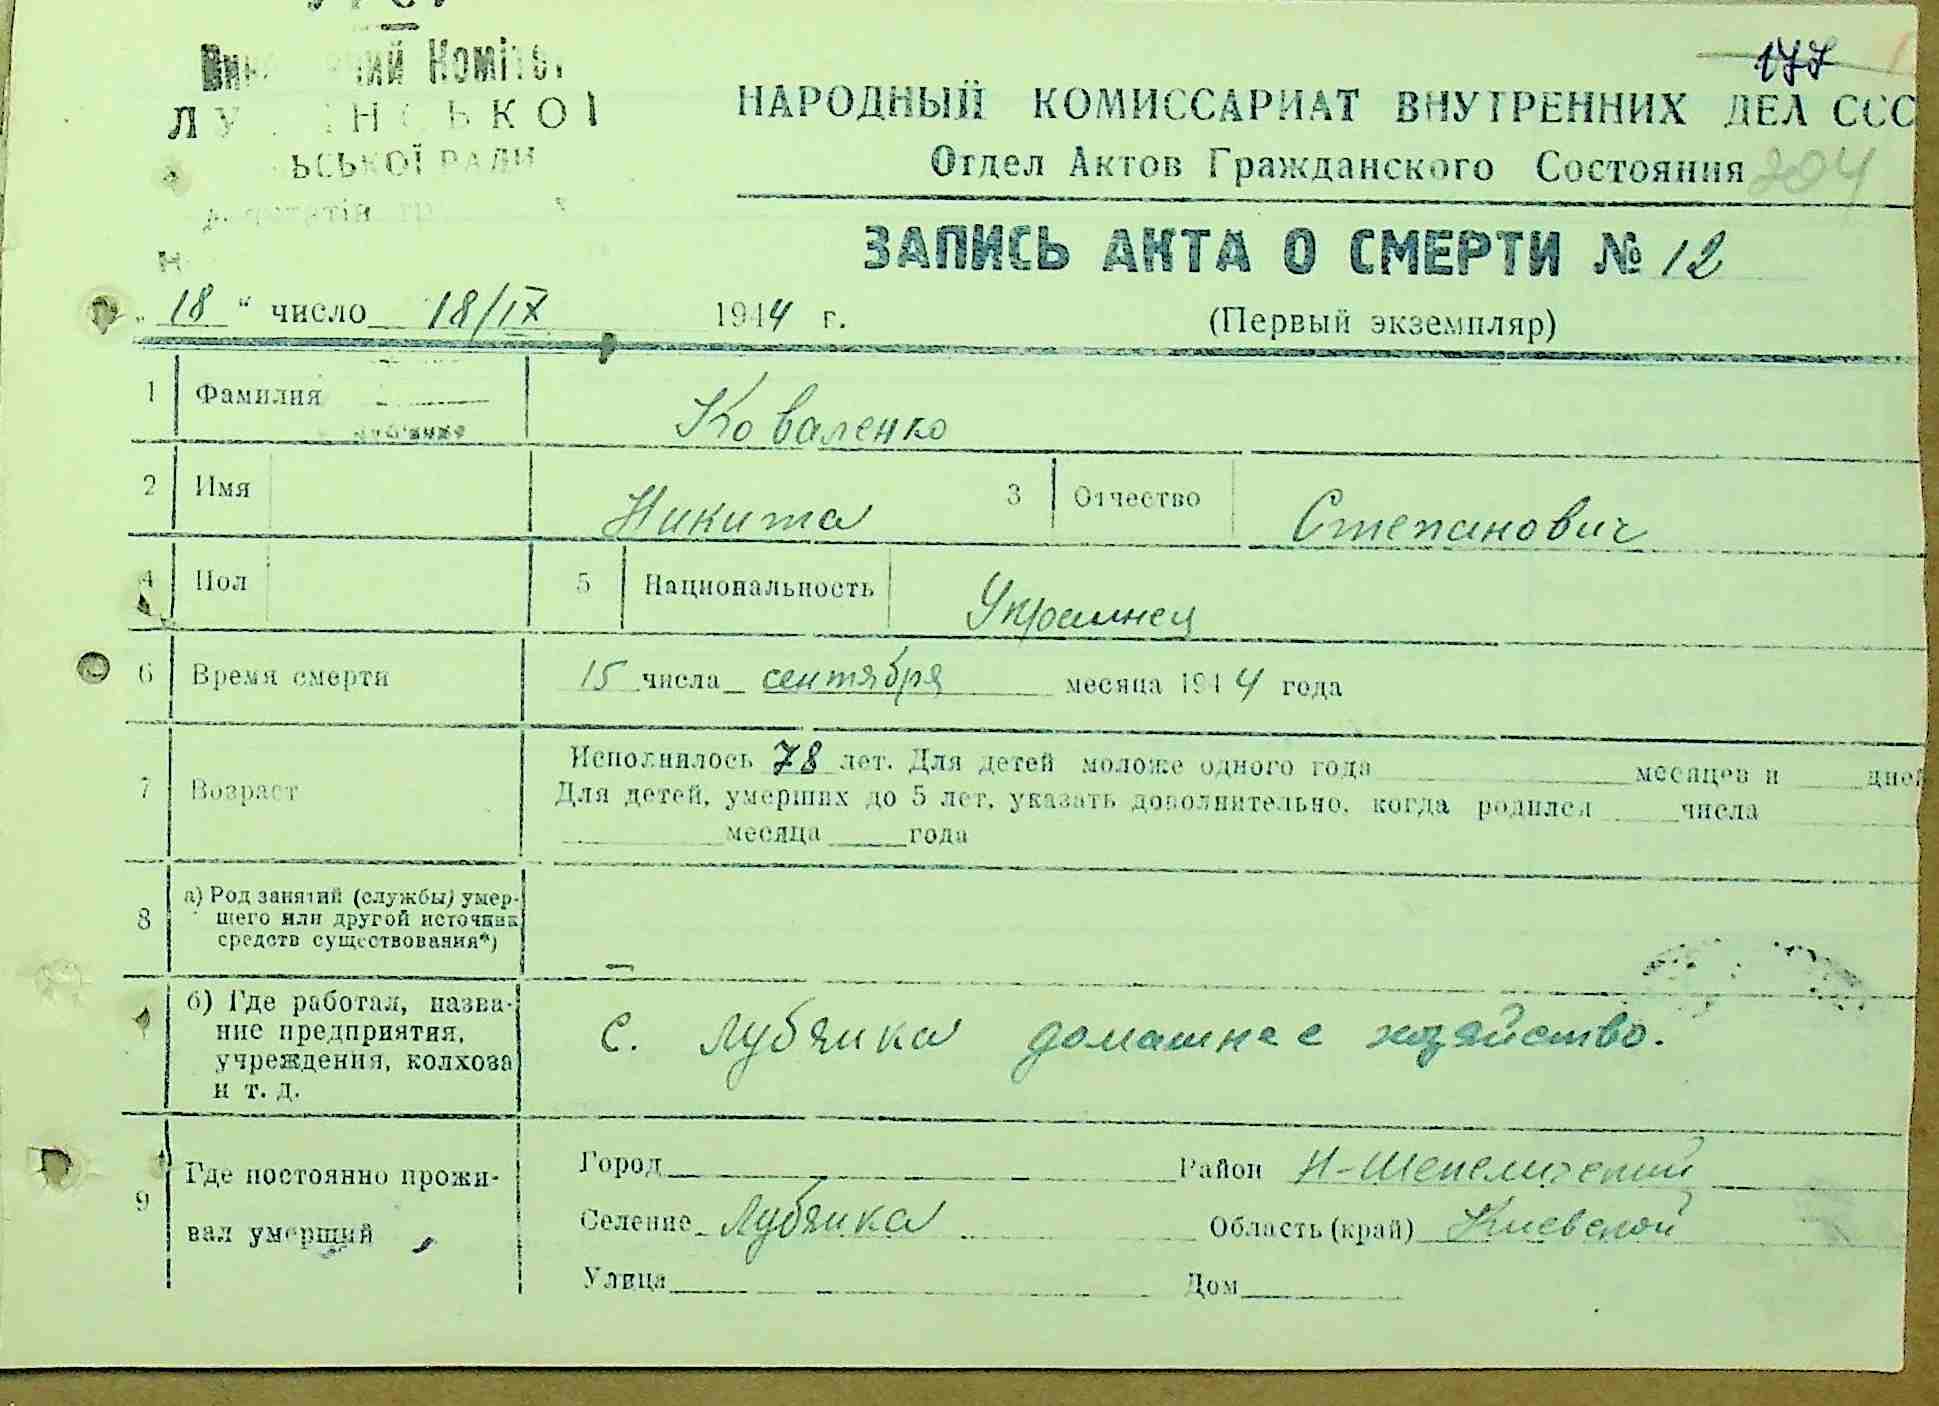 УРСР
Комітет
ЬСЬКОЇ РАДИ
177
НАРОДНЫЙ КОМИССАРИАТ ВНУТРЕННИХ ДЕЛ ССС
Отдел Актов Гражданского Состояния 204
ЗАПИСЬ АКТА О СМЕРТИ № 12
„18“ число 18/IX 1944 г.
(Первый экземпляр)
1 Фамилия Коваленко
2 Имя Никита 3 Отчество Степанович
4 Пол 5 Национальность Украинец
6 Время смерти 15 числа сентября месяца 1944 года
7 Возраст Исполнилось 78 лет. Для детей моложе одного года месяцев и дней
Для детей, умерших до 5 лет, указать дополнительно, когда родился числа
месяца года
8 а) Род занятий (службы) умер-
шего или другой источник
средств существования*)
–
б) Где работал, назва-
ние предприятия,
учреждения, колхоза
и т. д.
С. Лубянка домашнее хозяйство.
9 Где постоянно прожи-
вал умерший
Город Район Н-Шепеличский
Селение Лубянка Область (край) Киевской
Улица Дом